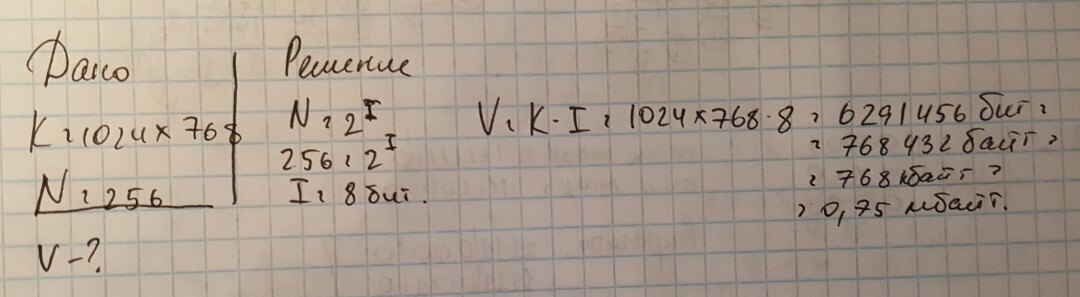 Дано
K=1024×768
N=256
V-?
Решение
N=2^I
256=2^I
I=8 бит.
V=K·I=1024×768·8=6291456 бит=
=768432 байт=
=768 кбайт=
=0,75 мбайт.